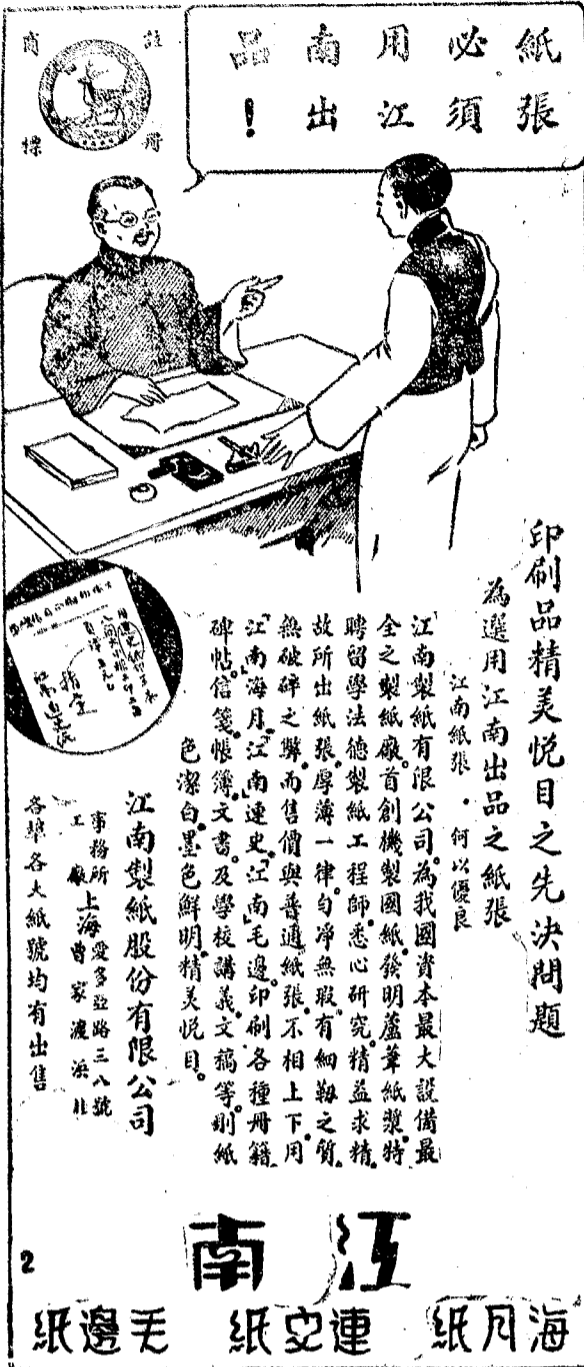 註冊
商標
紙張
必須
用江
南出
品!
印刷品精美悅目之先決問題
為選用江南出品之紙張
江南紙張・何以優良
江南製紙有限公司。為我國資本最大設備最
全之製紙廠。首創機製國紙。發明蘆葦紙漿。特
聘留學法德製紙工程師。悉心研究。精益求精。
故所出紙張。厚薄一律。勻淨無瑕。有細韌之質。
無破碎之弊。而售價與普通紙張。不相上下。用
「江南」海月。「江南」連史。「江南」毛邊。印刷各種冊籍。
碑帖。信箋。帳簿。文書。及學校講義。文稿等。則紙
色潔白。墨色鮮明。精美悅目。
江南製紙股份有限公司
事務所 上海愛多亞路三八號
工廠 上海曹家渡浜北
各埠各大紙號均有出售
江南
2
海月紙 連史紙 毛邊紙